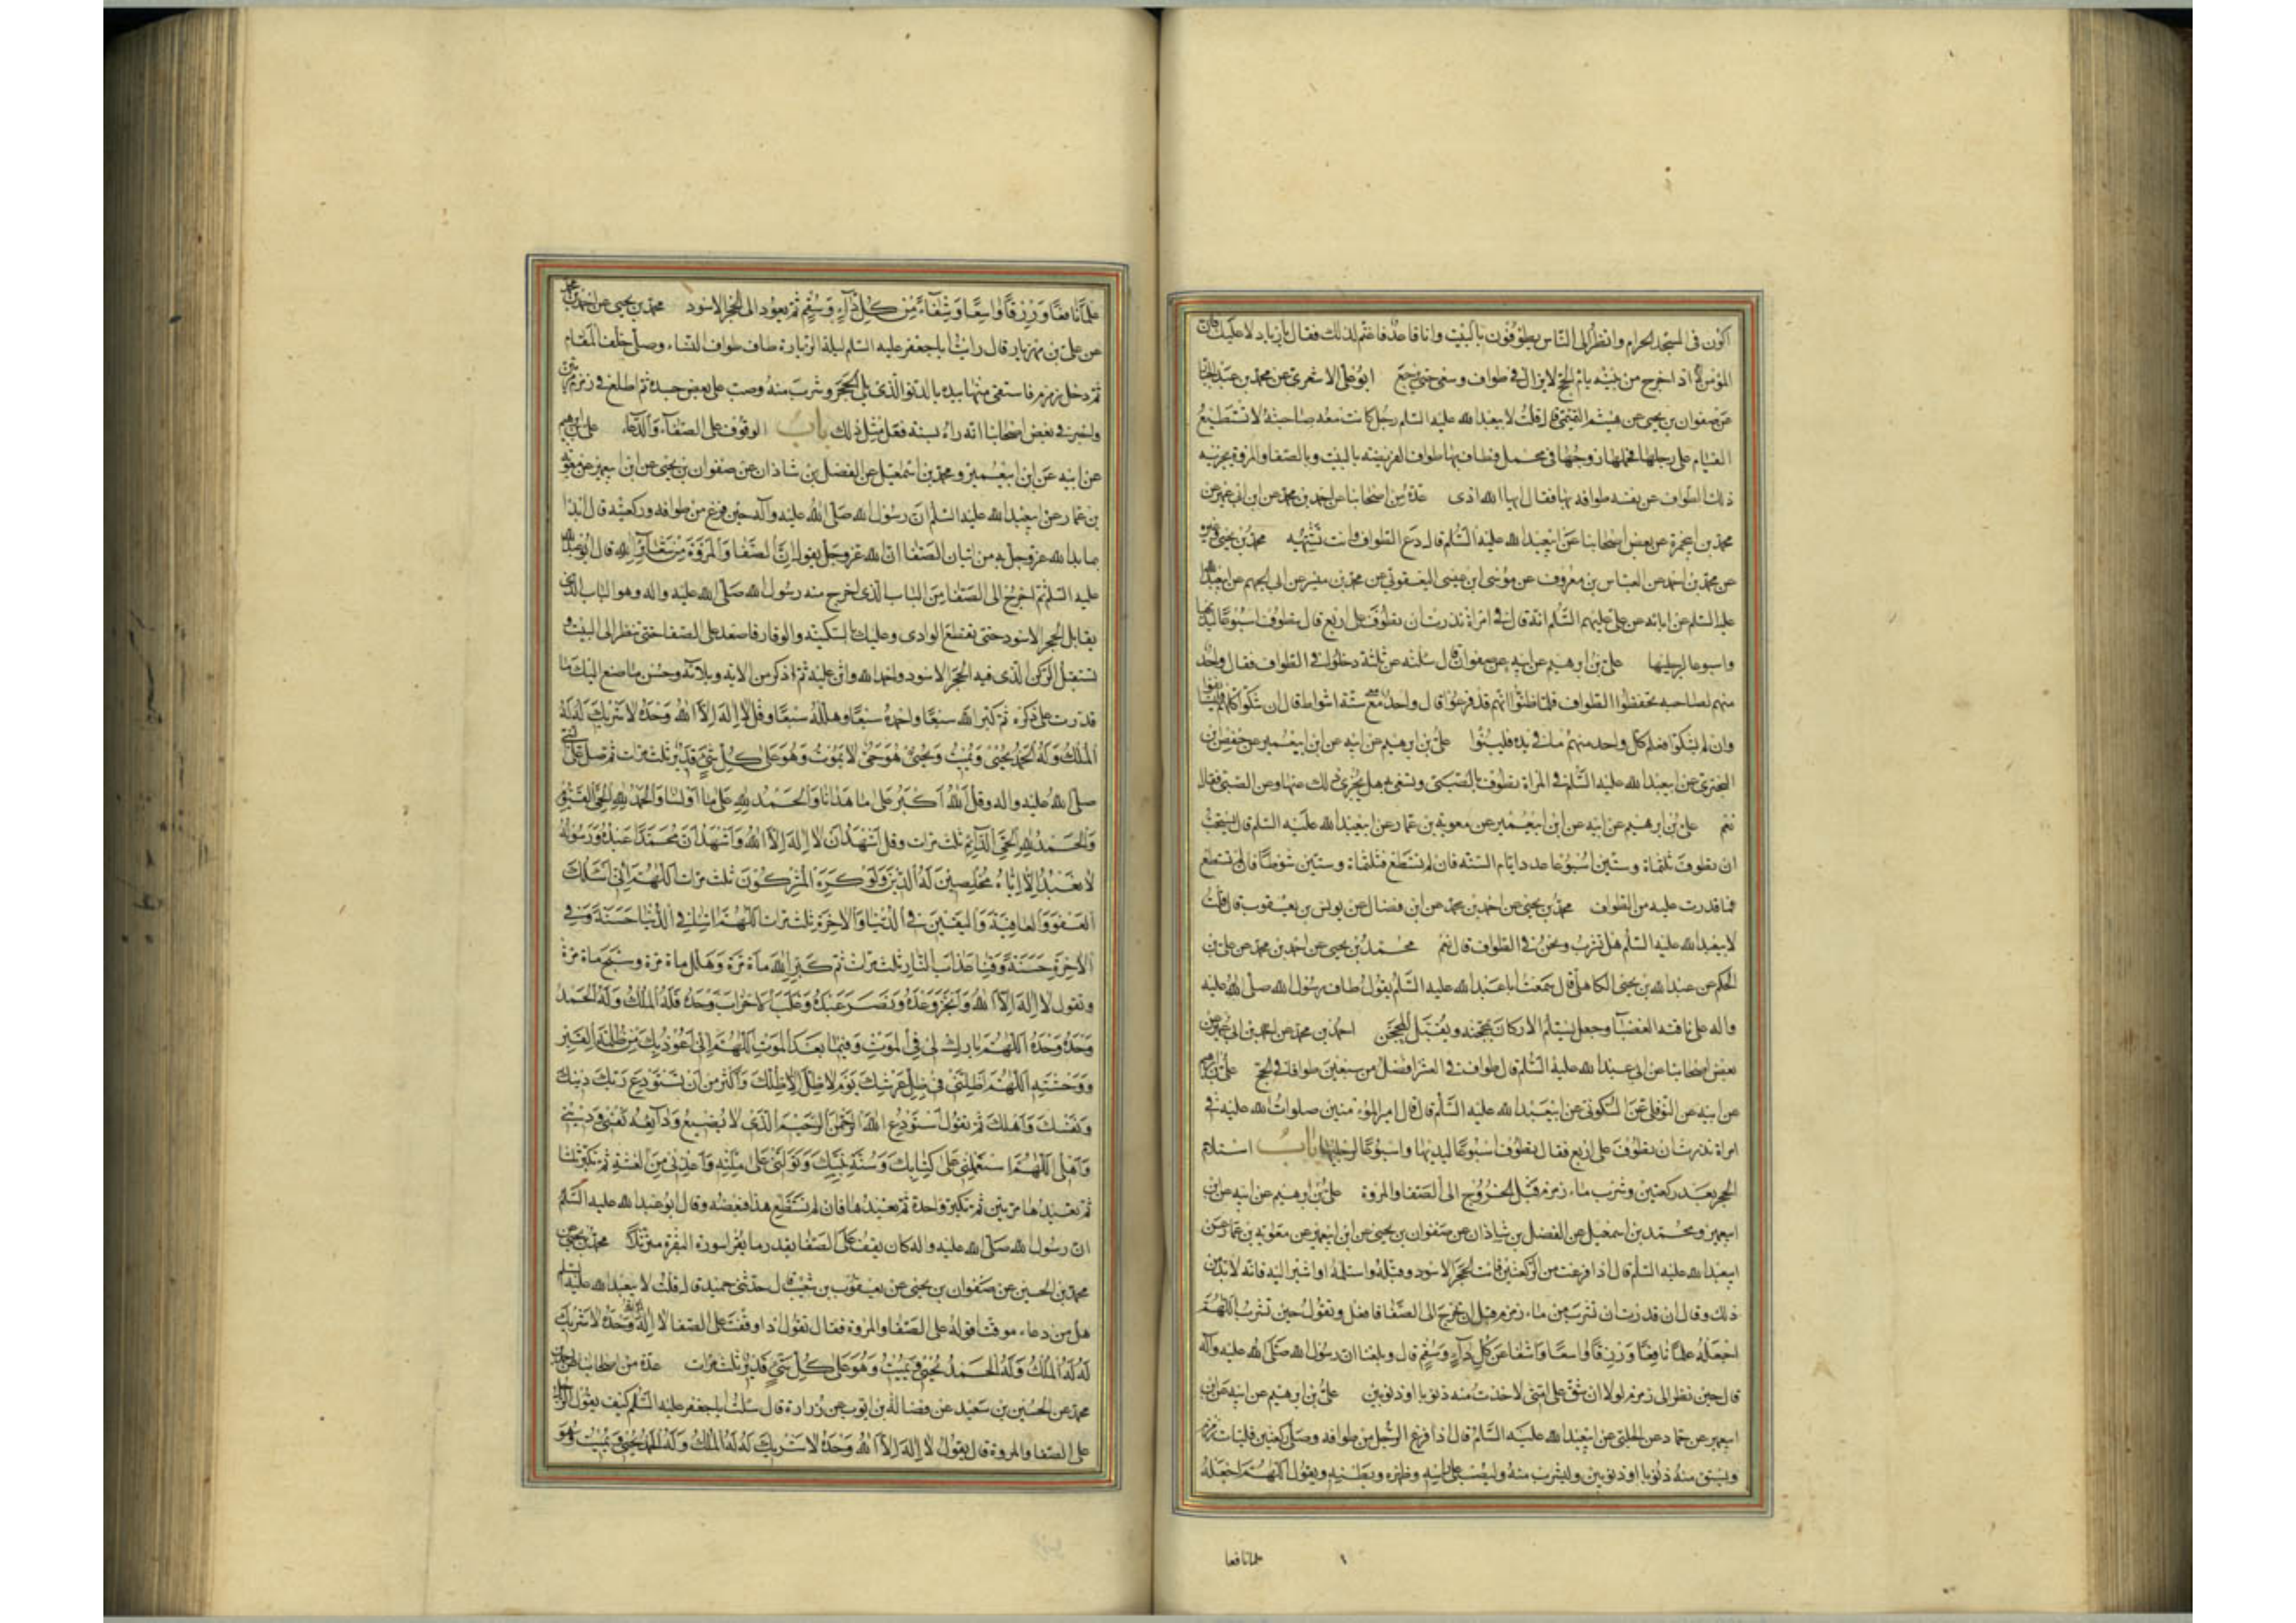 اكون فى المسجد الحرام وانظر الى الناس يطوفون بالبيت وانا قاعد فاغتم لذلك فقال يا زياد لا عليك فان
المؤمن اذا خرج من بيته يام الحج لا يزال فى طواف وسعى حتى يرجع ابو على الاشعرى عن محمد بن عبد الجبار
عن صفوان بن يحيى عن هيثم التميمى قال قلت لابيعبد الله عليه السلم رجل كانت معه صاحبته لا تستطيع
القيام على رجلها فحملها زوجها فى محمل فطاف بها طواف الفريضة بالبيت وبالصفا والمروة يجزيه
ذلك الطواف عن نفسه طوافه بها فقال ايها الله اذى عدة من اصحابنا عن احمد بن محمد عن ابن ابى عمير عن
محمد بن ابيحمزة عن بعض اصحابنا عن ابيعبد الله عليه السلم قال دع الطواف وانت تشتهيه محمد بن يحيى وغيره
عن محمد بن احمد عن العباس بن معروف عن موسى ابن عيسى اليعقوبى عن محمد بن ميسر عن ابى الجهم عن ابيعبد الله
عليه السلم عن ابائه عن على عليهم السلم انه قال فى امراة نذرت ان تطوف على اربع قال تطوف اسبوعا ليديها
واسبوعا لرجليها على بن ابرهيم عن ابيه عن صفوان قال سئلته عن ثلثة دخلوا فى الطواف فقال واحد
منهم لصاحبه تحفظوا الطواف فلما ظنوا انهم قد فرغوا قال واحد مع ستة اشواط قال ان شكوا كلهم فليستانفوا
وان لم يشكوا فعلم كل واحد منهم ما فى يده فليبنوا على بن ابرهيم عن ابيه عن ابن ابيعمير عن حفص بن
البخترى عن ابيعبد الله عليه السلم فى المراة تطوف بالصبى وتسعى به هل يجزى ذلك عنها وعن الصبى فقال
نعم على بن ابرهيم عن ابيه عن ابن ابيعمير عن معوية بن عمار عن ابيعبد الله عليه السلم قال يستحب
ان تطوف ثلثماة وستين اسبوعا عدد ايام السنة فان لم تستطع فثلثماة وستين شوطا فان لم تستطع
فما قدرت عليه من الطواف محمد بن يحيى عن احمد بن محمد عن ابن فضال عن يونس بن يعقوب قال قلت
لابيعبد الله عليه السلم هل نشرب ونحن فى الطواف قال نعم محمد بن يحيى عن احمد بن محمد عن على بن
الحكم عن عبد الله بن يحيى الكاهلى قال سمعت ابا عبد الله عليه السلم يقول طاف رسول الله صلى الله عليه
واله على ناقته العضباء وجعل يستلم الاركان بمحجنه ويقبل المحجن احمد بن محمد عن احمد بن ابى عبد الله عن
بعض اصحابنا عن ابى عبد الله عليه السلم قال طواف فى العشر افضل من سبعين طوافا فى الحج على بن ابرهيم
عن ابيه عن النوفلى عن السكونى عن ابيعبد الله عليه السلم قال قال امير المؤمنين صلوات الله عليه فى
امراة نذرت ان تطوف على اربع فقال تطوف اسبوعا ليديها واسبوعا لرجليها باب استلام
الحجر بعد ركعتين وشرب ماء زمزم قبل الخروج الى الصفا والمروة على بن ابرهيم عن ابيه عن ابن
ابيعمير ومحمد بن اسمعيل عن الفضل بن شاذان عن صفوان بن يحيى عن ابن ابيعمير عن معوية بن عمار عن
ابيعبد الله عليه السلم قال اذا فرغت من الركعتين فات الحجر الاسود وقبله واستلمه او اشر اليه فانه لا بد من
ذلك وقال ان قدرت ان تشرب من ماء زمزم قبل ان تخرج الى الصفا فافعل وتقول حين تشرب اللهم
اجعله علما نافعا ورزقا واسعا وشفاء من كل داء وسقم قال وبلغنا ان رسول الله صلى الله عليه واله
قال حين نظر الى زمزم لولا ان شق على امتى لاخذت منه ذنوبا او ذنوبين على بن ابرهيم عن ابيه عن ابن
ابيعمير عن حماد عن الحلبى عن ابيعبد الله عليه السلم قال اذا فرغ الرجل من طوافه وصلى ركعتين فليات زمزم
ويستق منه ذنوبا او ذنوبين وليشرب منه وليصب على راسه وظهره وبطنه ويقول اللهم اجعله
علما نافعا
١
علما نافعا ورزقا واسعا وشفاء من كل داء وسقم ثم يعود الى الحجر الاسود محمد بن يحيى عن احمد بن محمد
عن على بن مهزيار قال رايت ابا جعفر عليه السلم ليلة الزيارة طاف طواف النساء وصلى خلف المقام
ثم دخل زمزم فاستقى منها بيده بالدلو الذى يلى الحجر وشرب منه وصب على بعض جسده ثم اطلع فى زمزم مرتين
واخبرنى بعض اصحابنا انه راه بسنة فعل مثل ذلك باب الوقوف على الصفا والدعاء على بن ابرهيم
عن ابيه عن ابن ابيعمير ومحمد بن اسمعيل عن الفضل بن شاذان عن صفوان بن يحيى عن ابن ابيعمير عن معوية
بن عمار عن ابيعبد الله عليه السلم ان رسول الله صلى الله عليه وآله حين فرغ من طوافه وركعتيه قال ابدا
بما بدا الله عز وجل به من اتيان الصفا ان الله عز وجل يقول ان الصفا والمروة من شعائر الله قال ابو عبد الله
عليه السلم ثم اخرج الى الصفا من الباب الذى خرج منه رسول الله صلى الله عليه واله وهو الباب الذى
يقابل الحجر الاسود حتى تقطع الوادى وعليك السكينة والوقار فاصعد على الصفا حتى تنظر الى البيت و
تستقبل الركن الذى فيه الحجر الاسود واحمد الله واثن عليه ثم اذكر من الائه وبلائه وحسن ما صنع اليك ما
قدرت على ذكره ثم كبر الله سبعا واحمده سبعا وهلله سبعا وقل لا اله الا الله وحده لا شريك له له
الملك وله الحمد يحيى ويميت ويحيى هو حى لا يموت وهو على كل شىء قدير ثلث مرات ثم صل على النبى
صلى الله عليه واله وقل الله اكبر على ما هدانا والحمد لله على ما اولانا والحمد لله الحى القيوم
والحمد لله الحى الدائم ثلث مرات وقل اشهد ان لا اله الا الله واشهد ان محمدا عبده ورسوله
لا نعبد الا اياه مخلصين له الدين ولو كره المشركون ثلث مرات اللهم انى اسئلك
العفو والعافية واليقين فى الدنيا والاخرة ثلث مرات اللهم اتنا فى الدنيا حسنة وفى
الاخرة حسنة وقنا عذاب النار ثلث مرات ثم كبر الله ماة مرة وهلل ماة مرة وسبح ماة مرة
وتقول لا اله الا الله وانجز وعده ونصر عبده وغلب الاحزاب وحده فله الملك وله الحمد
وحده وحده اللهم بارك لى فى الموت وفيما بعد الموت اللهم انى اعوذ بك من ظلمة القبر
ووحشته اللهم اظلنى فى ظل عرشك يوم لا ظل الا ظلك واكثر من ان تستودع ربك دينك
ونفسك واهلك ثم تقول استودع الله الرحمن الرحيم الذى لا يضيع ودائعه نفسى ودينى
واهلى اللهم استعملنى على كتابك وسنة نبيك وتوفنى على ملته واعذنى من الفتنة ثم تكبر ثلثا
ثم تعيدها مرتين ثم تكبر واحدة ثم تعيدها فان لم تستطع هذا فبعضه وقال ابو عبد الله عليه السلم
ان رسول الله صلى الله عليه واله كان يقف على الصفا بقدر ما يقرا سورة البقرة مترتلا محمد بن يحيى عن
محمد بن الحسين عن صفوان بن يحيى عن يعقوب بن شعيب قال حدثنى جميل قال قلت لابيعبد الله عليه السلم
هل من دعاء موقت اقوله على الصفا والمروة فقال تقول اذا وقفت على الصفا لا اله الا الله وحده لا شريك
له له الملك وله الحمد يحيى ويميت وهو على كل شىء قدير ثلث مرات عدة من اصحابنا عن احمد بن
محمد عن الحسين بن سعيد عن فضالة بن ايوب عن زرارة قال سئلت ابا جعفر عليه السلم كيف يقول الرجل
على الصفا والمروة قال يقول لا اله الا الله وحده لا شريك له له الملك وله الحمد يحيى ويميت وهو